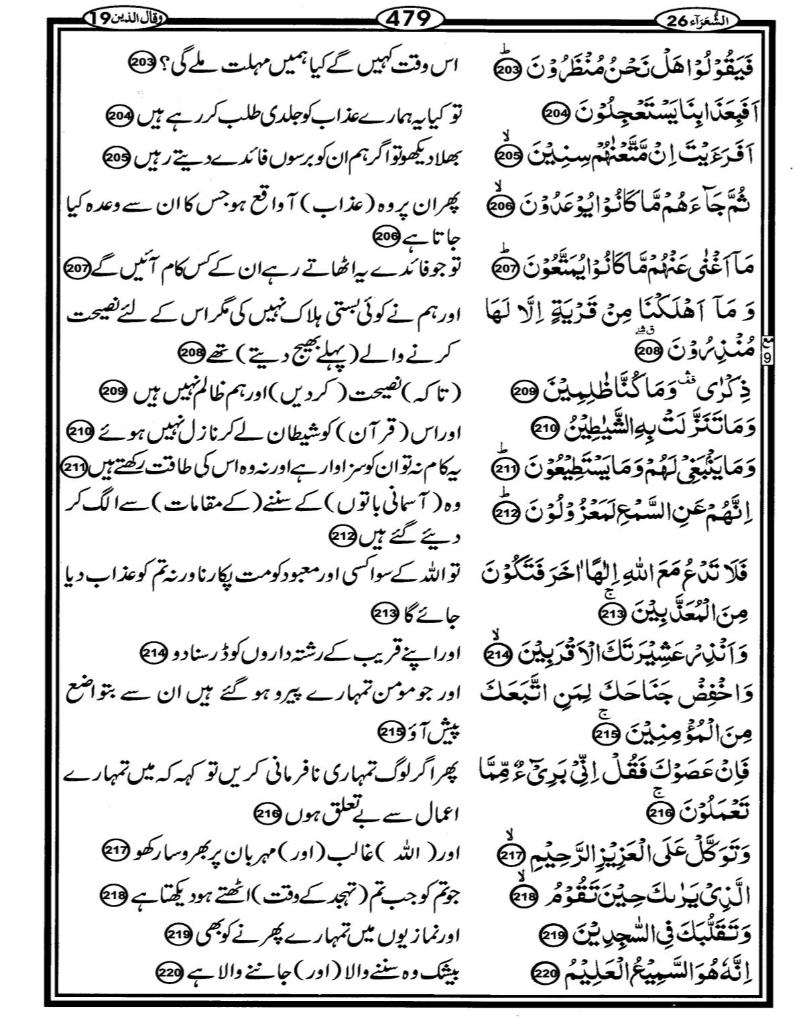 الشعرآء 26
479
وقال الذين 19
فَيَقُوۡلُوۡا هَلۡ نَحۡنُ مُنۡظَرُوۡنَ ؕ 203
اس وقت کہیں گے کیا ہمیں مہلت ملے گی؟ 203
اَفَبِعَذَابِنَا يَسۡتَعۡجِلُوۡنَ 204
تو کیا یہ ہمارے عذاب کو جلدی طلب کر رہے ہیں 204
اَفَرَءَيۡتَ اِنۡ مَّتَّعۡنٰهُمۡ سِنِيۡنَ ۙ 205
بھلا دیکھو تو اگر ہم ان کو برسوں فائدے دیتے رہیں 205
ثُمَّ جَآءَهُمۡ مَّا كَانُوۡا يُوۡعَدُوۡنَ ۙ 206
پھر ان پر وہ (عذاب) آ واقع ہو جس کا ان سے وعدہ کیا
جاتا ہے 206
مَاۤ اَغۡنٰى عَنۡهُمۡ مَّا كَانُوۡا يُمَتَّعُوۡنَ ؕ 207
تو جو فائدے یہ اٹھاتے رہے ان کے کس کام آئیں گے 207
وَ مَاۤ اَهۡلَكۡنَا مِنۡ قَرۡيَةٍ اِلَّا لَهَا
مُنۡذِرُوۡنَ 208
اور ہم نے کوئی بستی ہلاک نہیں کی مگر اس کے لئے نصیحت
کرنے والے (پہلے بھیج دیتے) تھے 208
ع 9
ذِكۡرٰى ۛ وَمَا كُنَّا ظٰلِمِيۡنَ 209
(تاکہ) نصیحت (کر دیں) اور ہم ظالم نہیں ہیں 209
وَمَا تَنَزَّلَتۡ بِهِ الشَّيٰطِيۡنُ 210
اور اس (قرآن) کو شیطان لے کر نازل نہیں ہوئے 210
وَمَا يَنۡۢبَغِىۡ لَهُمۡ وَمَا يَسۡتَطِيۡعُوۡنَ ؕ 211
یہ کام نہ تو ان کو سزاوار ہے اور نہ وہ اس کی طاقت رکھتے ہیں 211
اِنَّهُمۡ عَنِ السَّمۡعِ لَمَعۡزُوۡلُوۡنَ ؕ 212
وہ (آسمانی باتوں) کے سننے (کے مقامات) سے الگ کر
دیئے گئے ہیں 212
فَلَا تَدۡعُ مَعَ اللّٰهِ اِلٰهًا اٰخَرَ فَتَكُوۡنَ
مِنَ الۡمُعَذَّبِيۡنَ ۚ 213
تو اللہ کے سوا کسی اور معبود کو مت پکارنا ورنہ تم کو عذاب دیا
جائے گا 213
وَاَنۡذِرۡ عَشِيۡرَتَكَ الۡاَقۡرَبِيۡنَ ۙ 214
اور اپنے قریب کے رشتہ داروں کو ڈر سنا دو 214
وَاخۡفِضۡ جَنَاحَكَ لِمَنِ اتَّبَعَكَ
مِنَ الۡمُؤۡمِنِيۡنَ ۚ 215
اور جو مومن تمہارے پیرو ہو گئے ہیں ان سے بتواضع
پیش آؤ 215
فَاِنۡ عَصَوۡكَ فَقُلۡ اِنِّىۡ بَرِىۡٓءٌ مِّمَّا
تَعۡمَلُوۡنَ ۚ 216
پھر اگر لوگ تمہاری نافرمانی کریں تو کہہ کہ میں تمہارے
اعمال سے بے تعلق ہوں 216
وَتَوَكَّلۡ عَلَى الۡعَزِيۡزِ الرَّحِيۡمِ ۙ 217
اور (اللہ) غالب (اور) مہربان پر بھروسا رکھو 217
الَّذِىۡ يَرٰٮكَ حِيۡنَ تَقُوۡمُ ۙ 218
جو تم کو جب تم (تہجد کے وقت) اٹھتے ہو دیکھتا ہے 218
وَتَقَلُّبَكَ فِى السّٰجِدِيۡنَ 219
اور نمازیوں میں تمہارے پھرنے کو بھی 219
اِنَّهٗ هُوَ السَّمِيۡعُ الۡعَلِيۡمُ 220
بیشک وہ سننے والا (اور) جاننے والا ہے 220